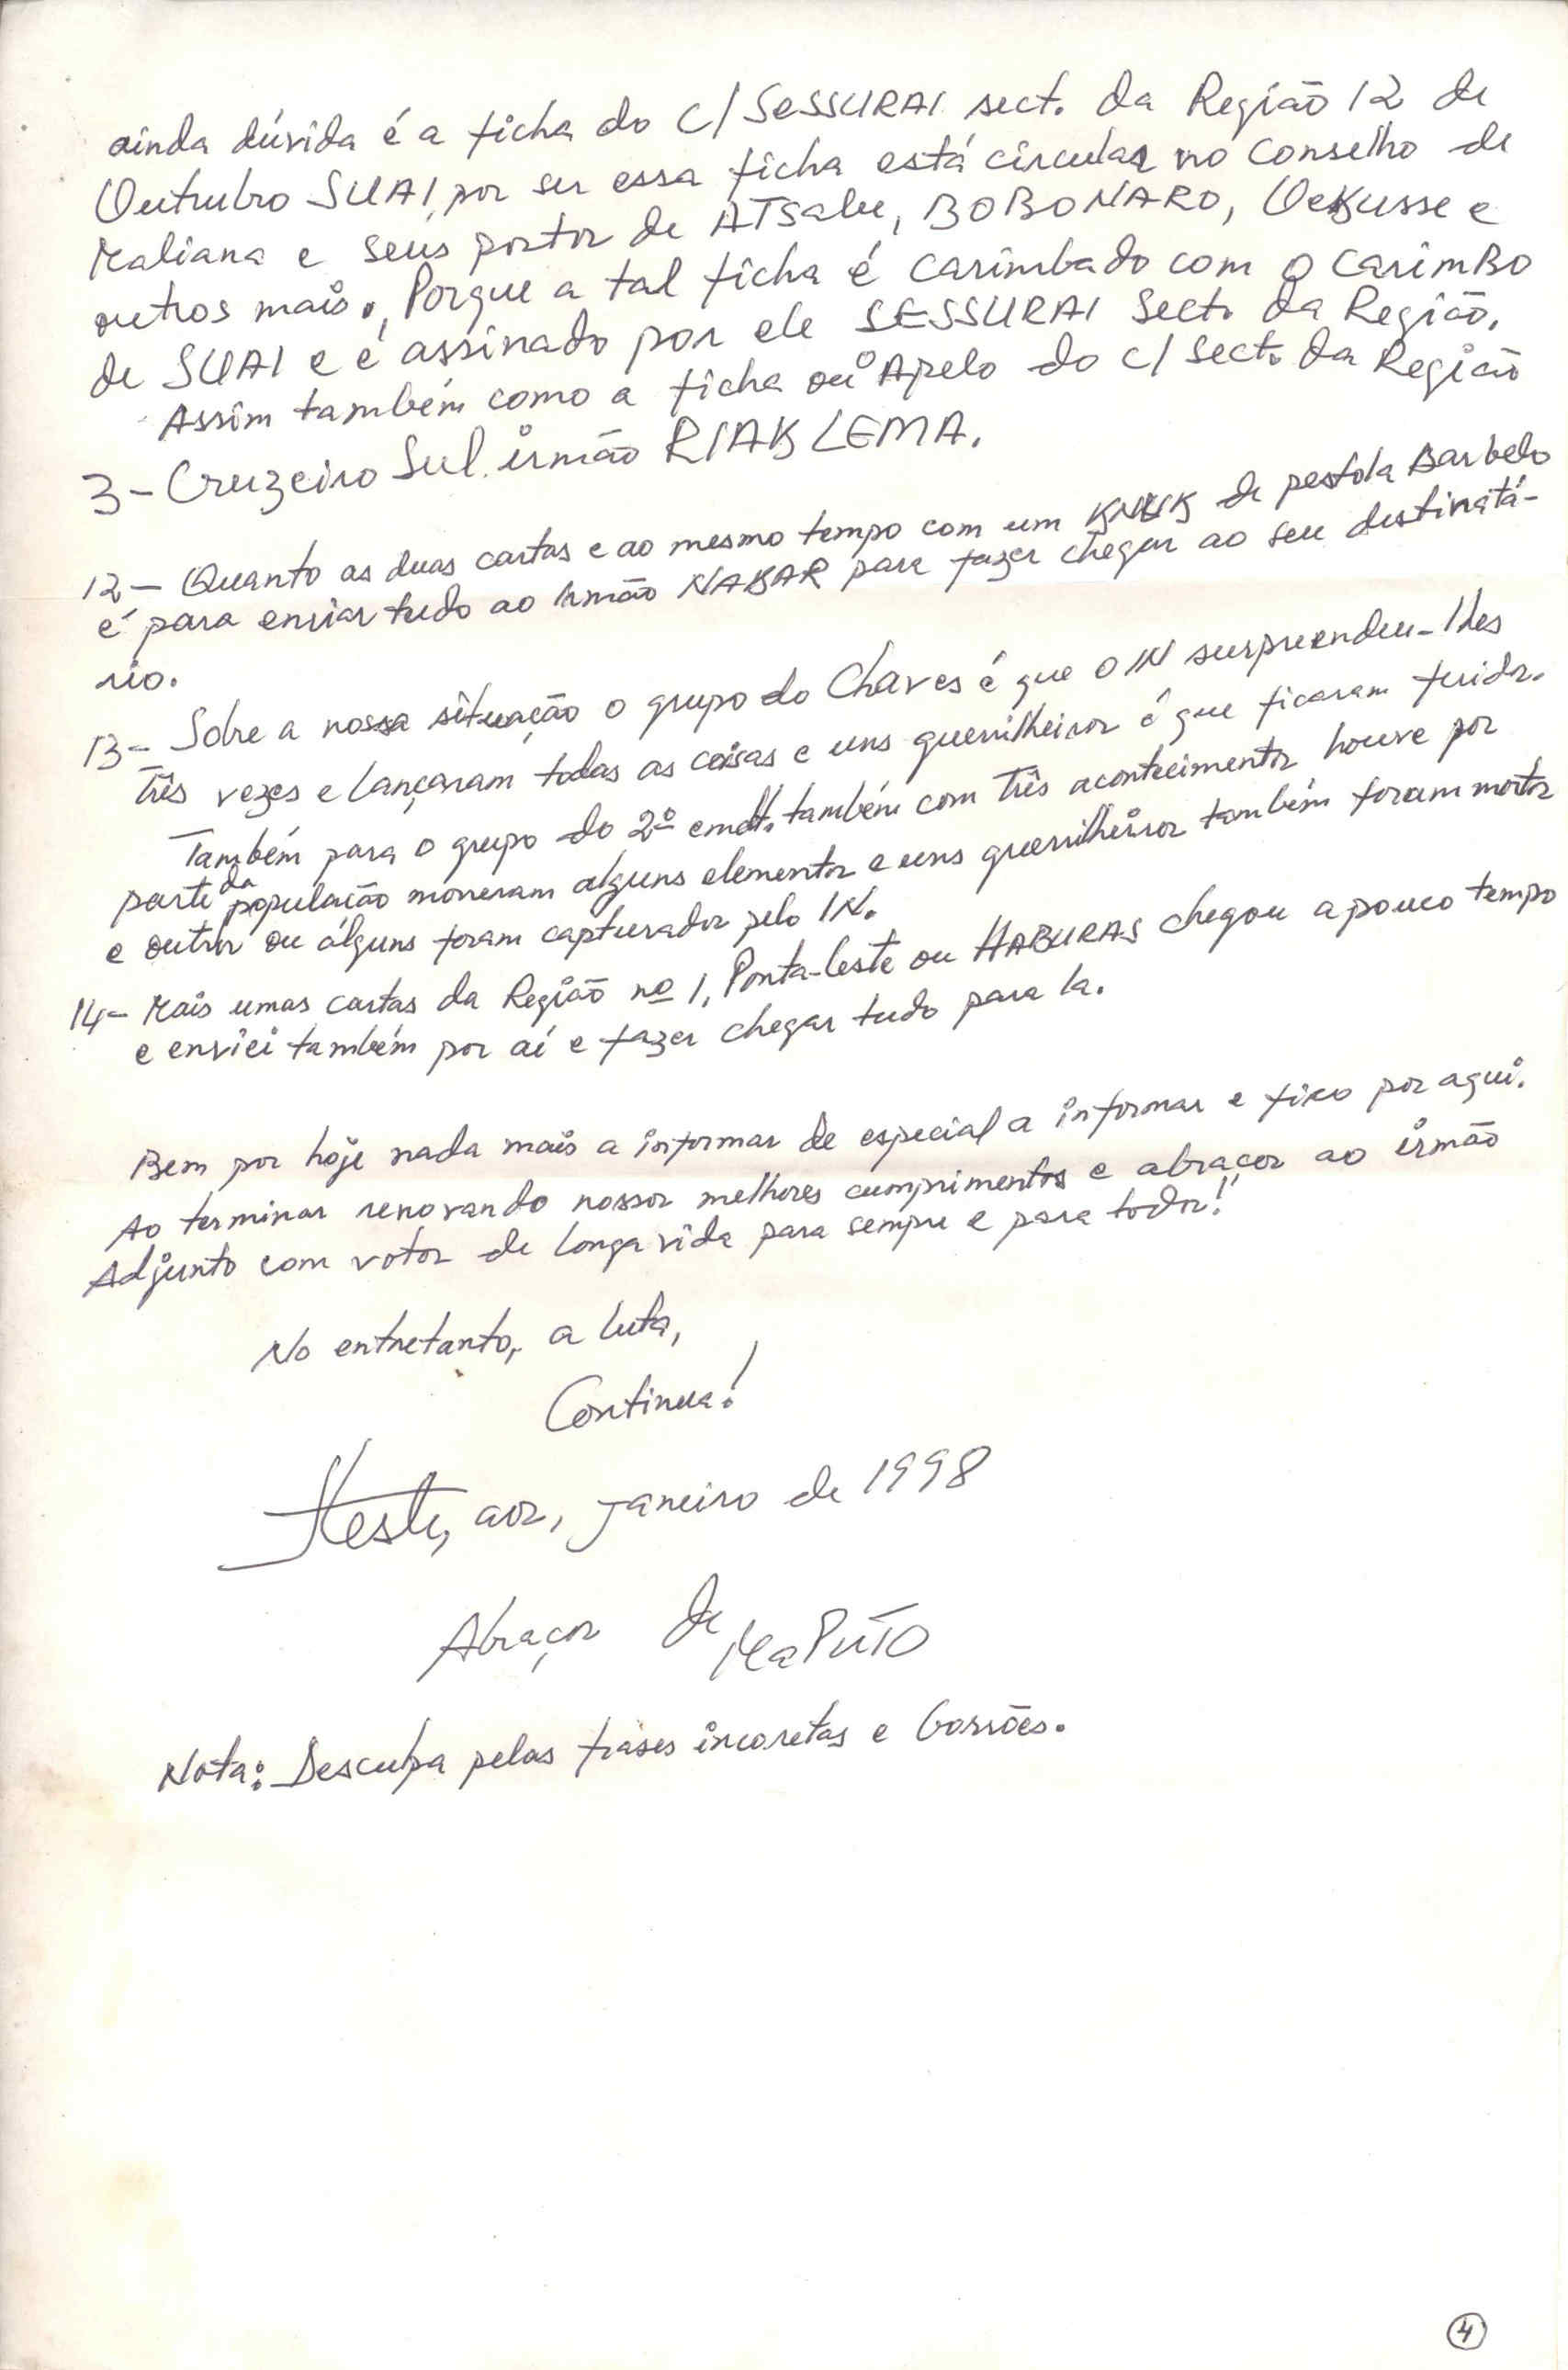 ainda dúvida é a ficha do C/ SESSURAI sect. da Região 12 de
Outubro SUAI, por ser essa ficha está circular no Conselho de
Maliana e seus postos de ATSabe, BOBONARO, Oekusse e
outros mais., Porque a tal ficha é carimbado com o carimbo
de SUAI e é assinado por ele SESSURAI Sect. da Região.
Assim também como a ficha ou Apelo do C/ Sect. da Região
3 - Cruzeiro Sul. irmão RIAK LEMA.
12 - Quanto as duas cartas e ao mesmo tempo com um de pestola Barbelo
é para enviar tudo ao Irmão NAKAR para fazer chegar ao seu destinatá-
rio.
13 - Sobre a nossa situação o grupo do Chaves é que o IN surpreendeu-lhes
Três vezes e lançaram todas as coisas e uns guerrilheiros é que ficaram feridos.
Também para o grupo do 2º cmdt. também com Três acontecimentos houve por
parte da população morreram alguns elementos e uns guerrilheiros também foram mortos
e outros ou álguns foram capturados pelo IN.
14 - Mais umas cartas da Região nº 1, Ponta-Leste ou HABURAS chegou a pouco tempo
e enviei também por aí e fazer chegar tudo para la.
Bem por hoje nada mais a informar de especial a informar e fico por aqui.
Ao terminar renovando nossos melhores cumprimentos e abraços ao irmão
Adjunto com votos de longa vida para sempre e para todos!
No entretanto, a luta,
Continua!
Neste, aos, Janeiro de 1998
Abraços de MaPUTO
Nota: Desculpa pelas frases incoretas e borrões.
4